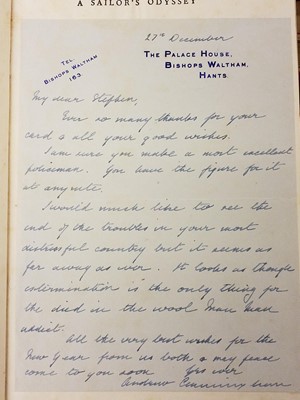 A SAILOR'S ODYSSEY
27th December
TEL.
BISHOPS WALTHAM
163.
THE PALACE HOUSE,
BISHOPS WALTHAM,
HANTS.
My dear Stephen,
Ever so many thanks for your
card & all your good wishes.
I am sure you make a most excellent
policeman. You have the figure for it
at anyrate.
I would much like to see the
end of the troubles in your most
distressful country but it seems as
far away as ever. It looks as though
extermination is the only thing for
the died in the wool Mau Mau
addict.
All the very best wishes for the
New Year from us both & may peace
come to you soon Yrs ever
Andrew